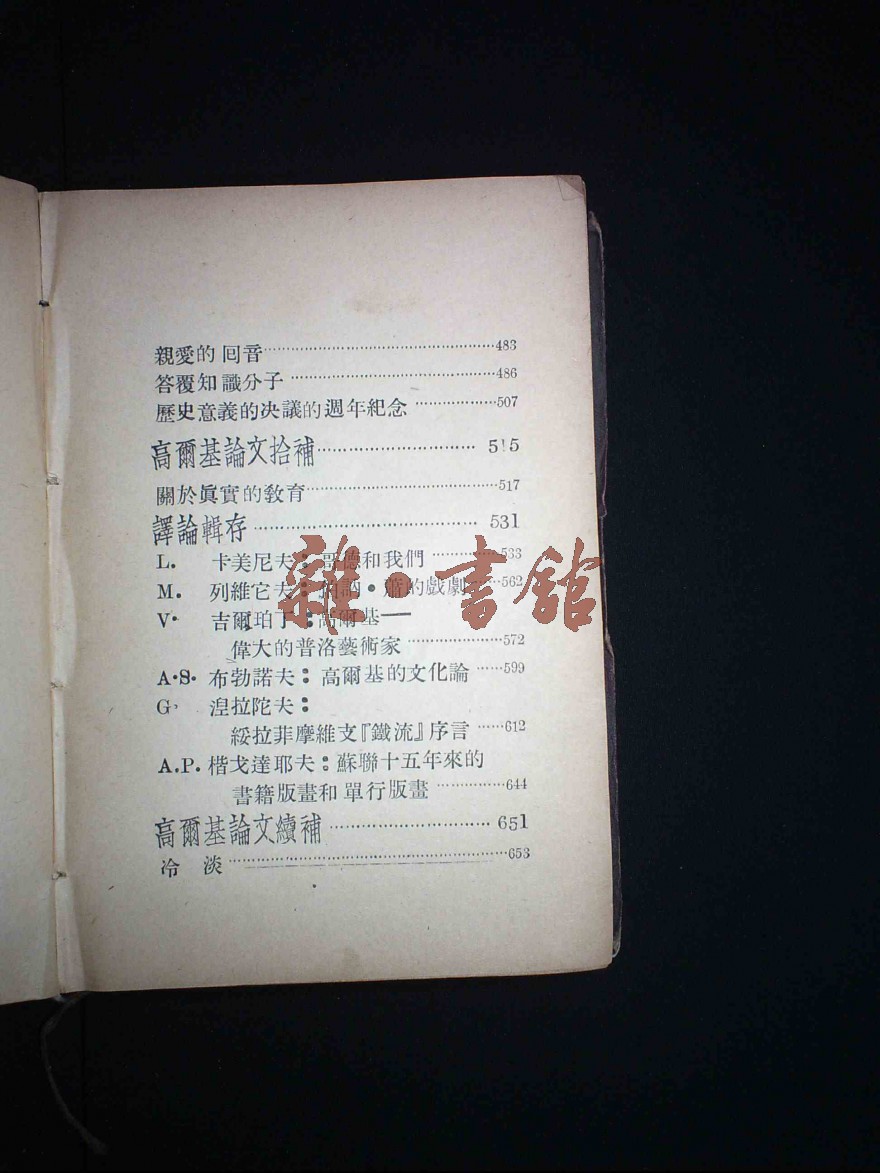 親愛的 回音……483
答覆知識分子……486
歷史意義的决議的週年紀念……507
高爾基論文拾補……515
關於眞實的敎育……517
譯論輯存……531
L. 卡美尼夫：哥德和我們……533
M. 列維它夫：伯訥·蕭的戲劇……562
V· 吉爾珀丁：高爾基——
偉大的普洛藝術家……572
A·S· 布勃諾夫：高爾基的文化論……599
G, 湼拉陀夫：
綏拉菲摩維支『鐵流』序言……612
A.P. 楷戈達耶夫：蘇聯十五年來的
書籍版畫和單行版畫……644
高爾基論文續補……651
冷 淡……653
雜·書舘